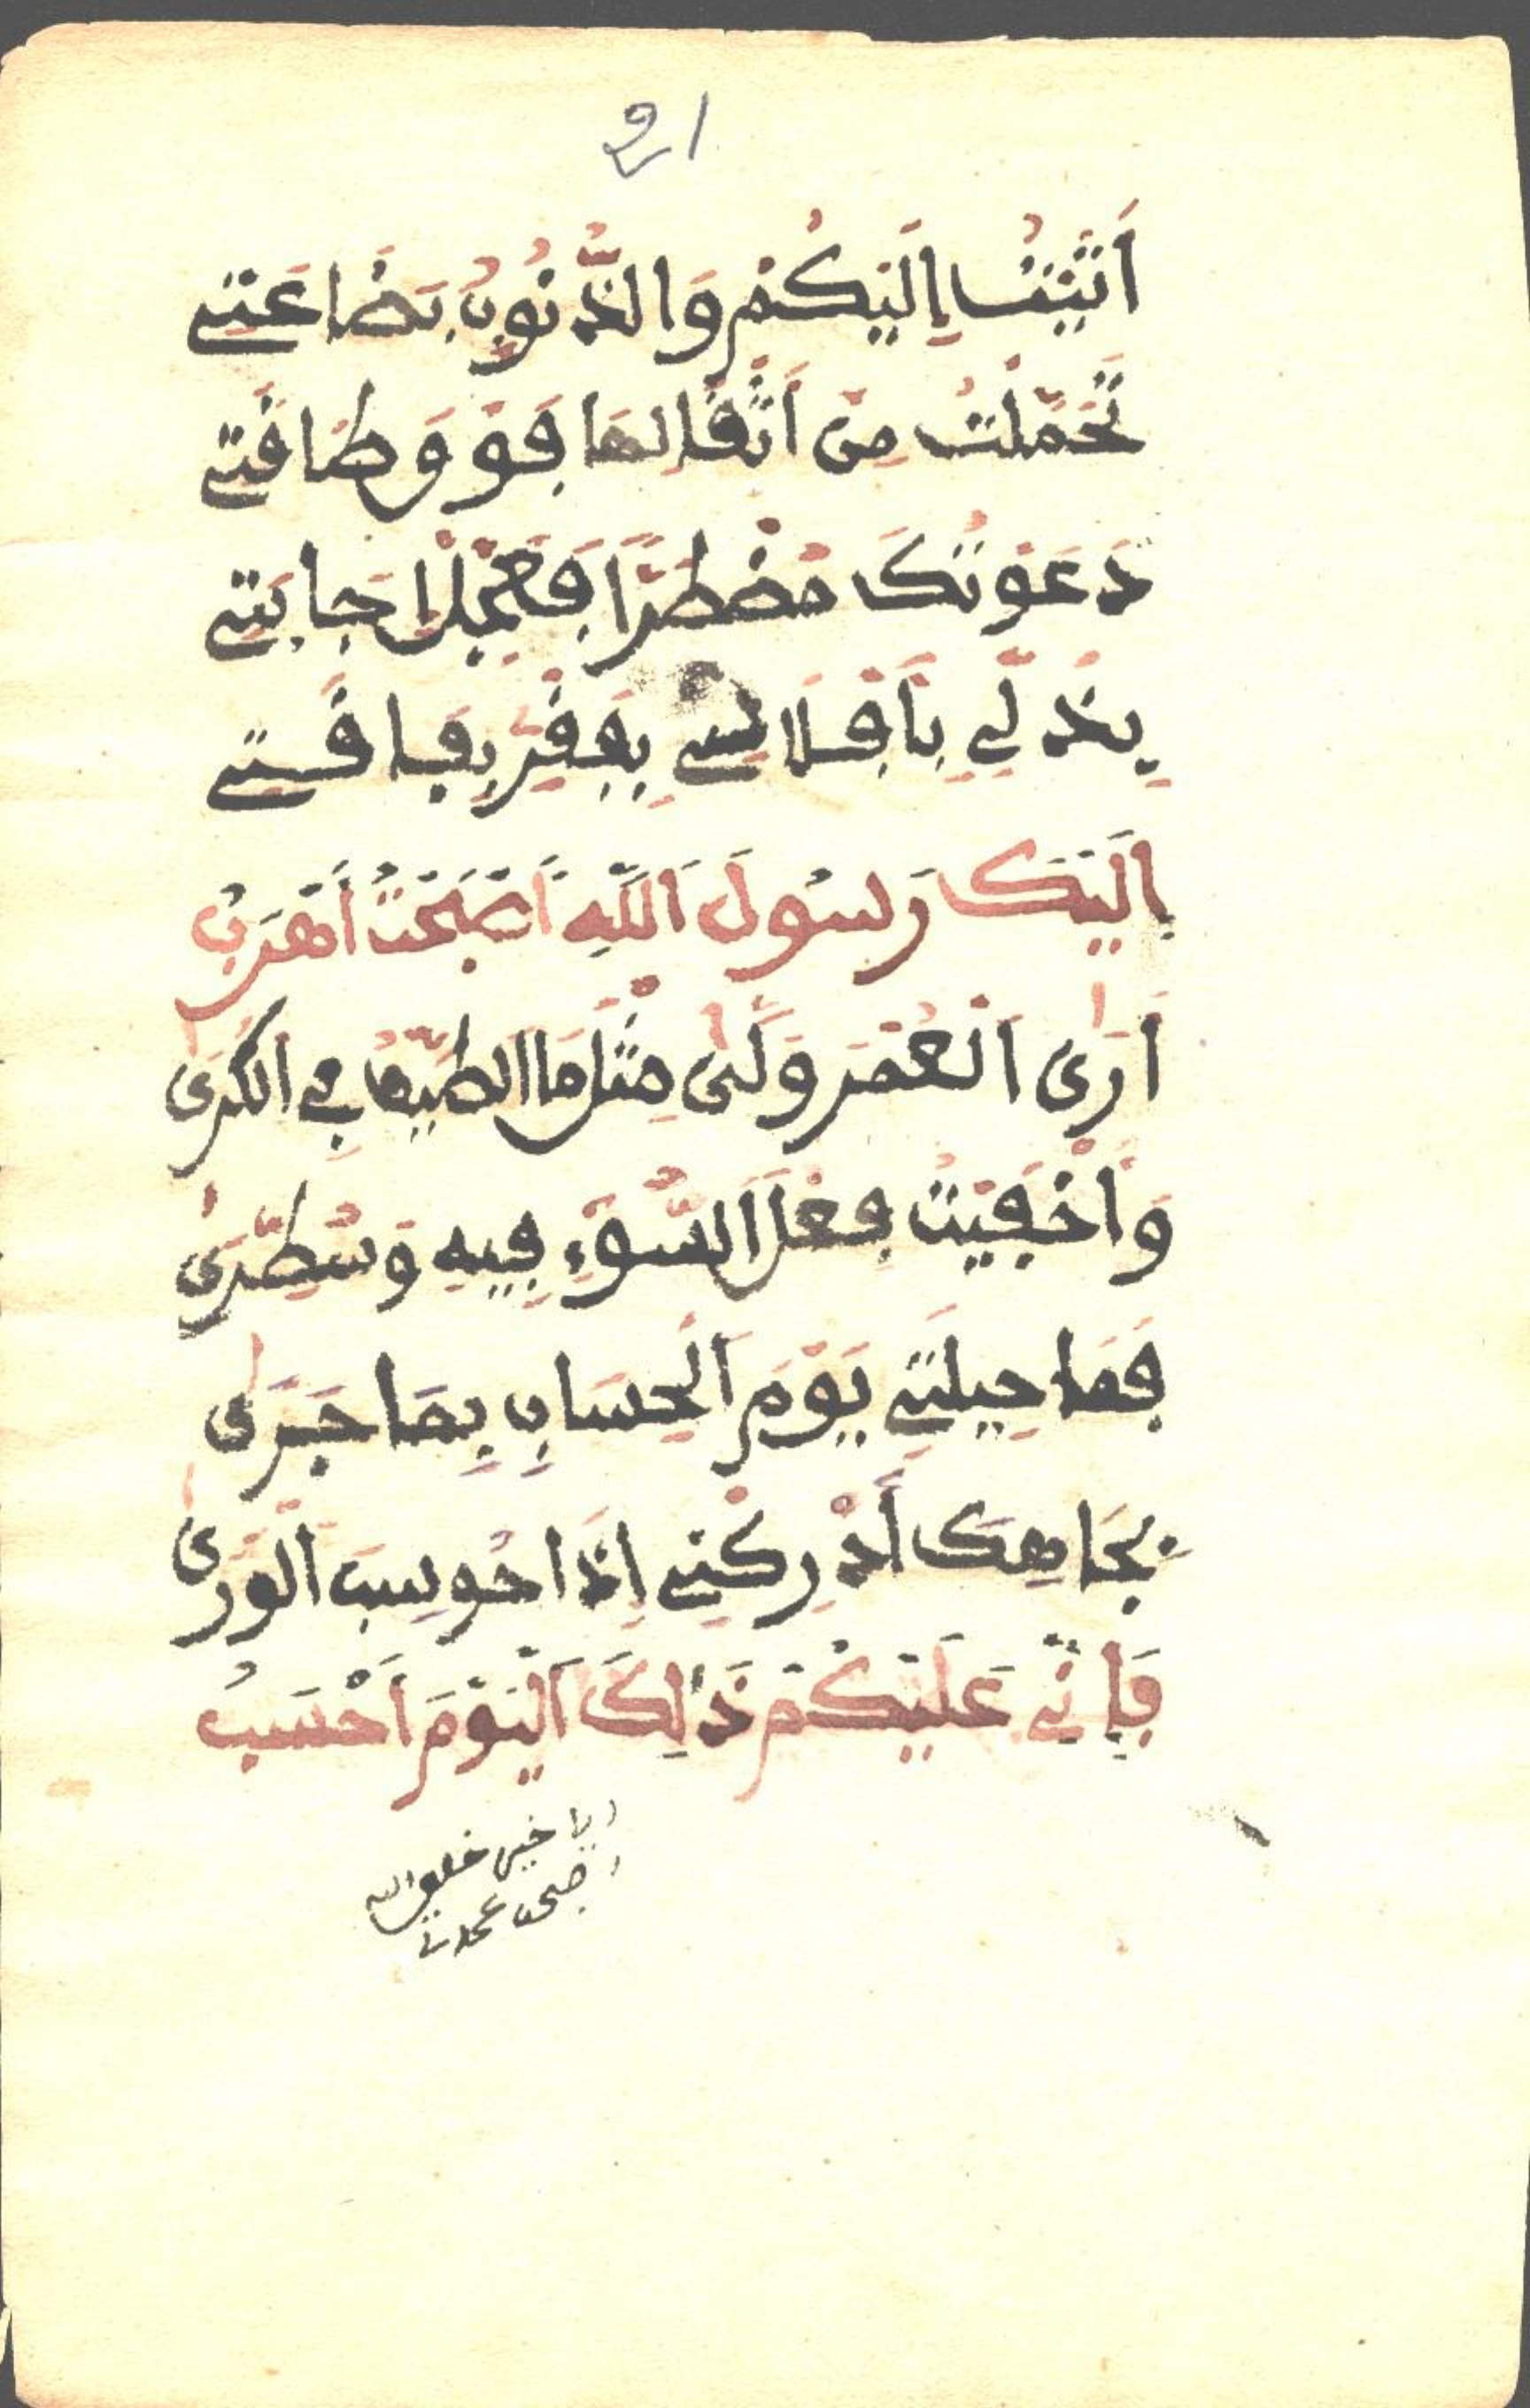 21
أَتَيْتُ إِلَيْكُمْ وَالذُّنُوبُ بَضَاعَتِي
تَحَمَّلْتُ مِنْ أَثْقَالِهَا فَوْقَ طَاقَتِي
دَعَوْتُكَ مُضْطَرًّا فَعَجِّلْ إِجَابَتِي
بِذُلِّي بِأَفْلَاسِي بِفَقْرِ بِفَاقَتِي
إِلَيْكَ رَسُولَ اللَّهِ أَصْبَحْتُ أَهْرَبُ
أَرَى الْعُمْرَ وَلَّى مِثْلَ مَا الطَّيْفُ فِي الْكَرَى
وَأَخْفَيْتُ فِعْلَ السُّوءِ فِيهِ وَسُطِّرَى
فَمَا حِيلَتِي يَوْمَ الْحِسَابِ بِمَا جَرَى
بِجَاهِكَ أَدْرِكْنِي إِذَا حُوسِبَ الْوَرَى
فَإِنِّي عَلَيْكُمْ ذَلِكَ الْيَوْمَ أَحْسَبُ
يا خير خلق الله